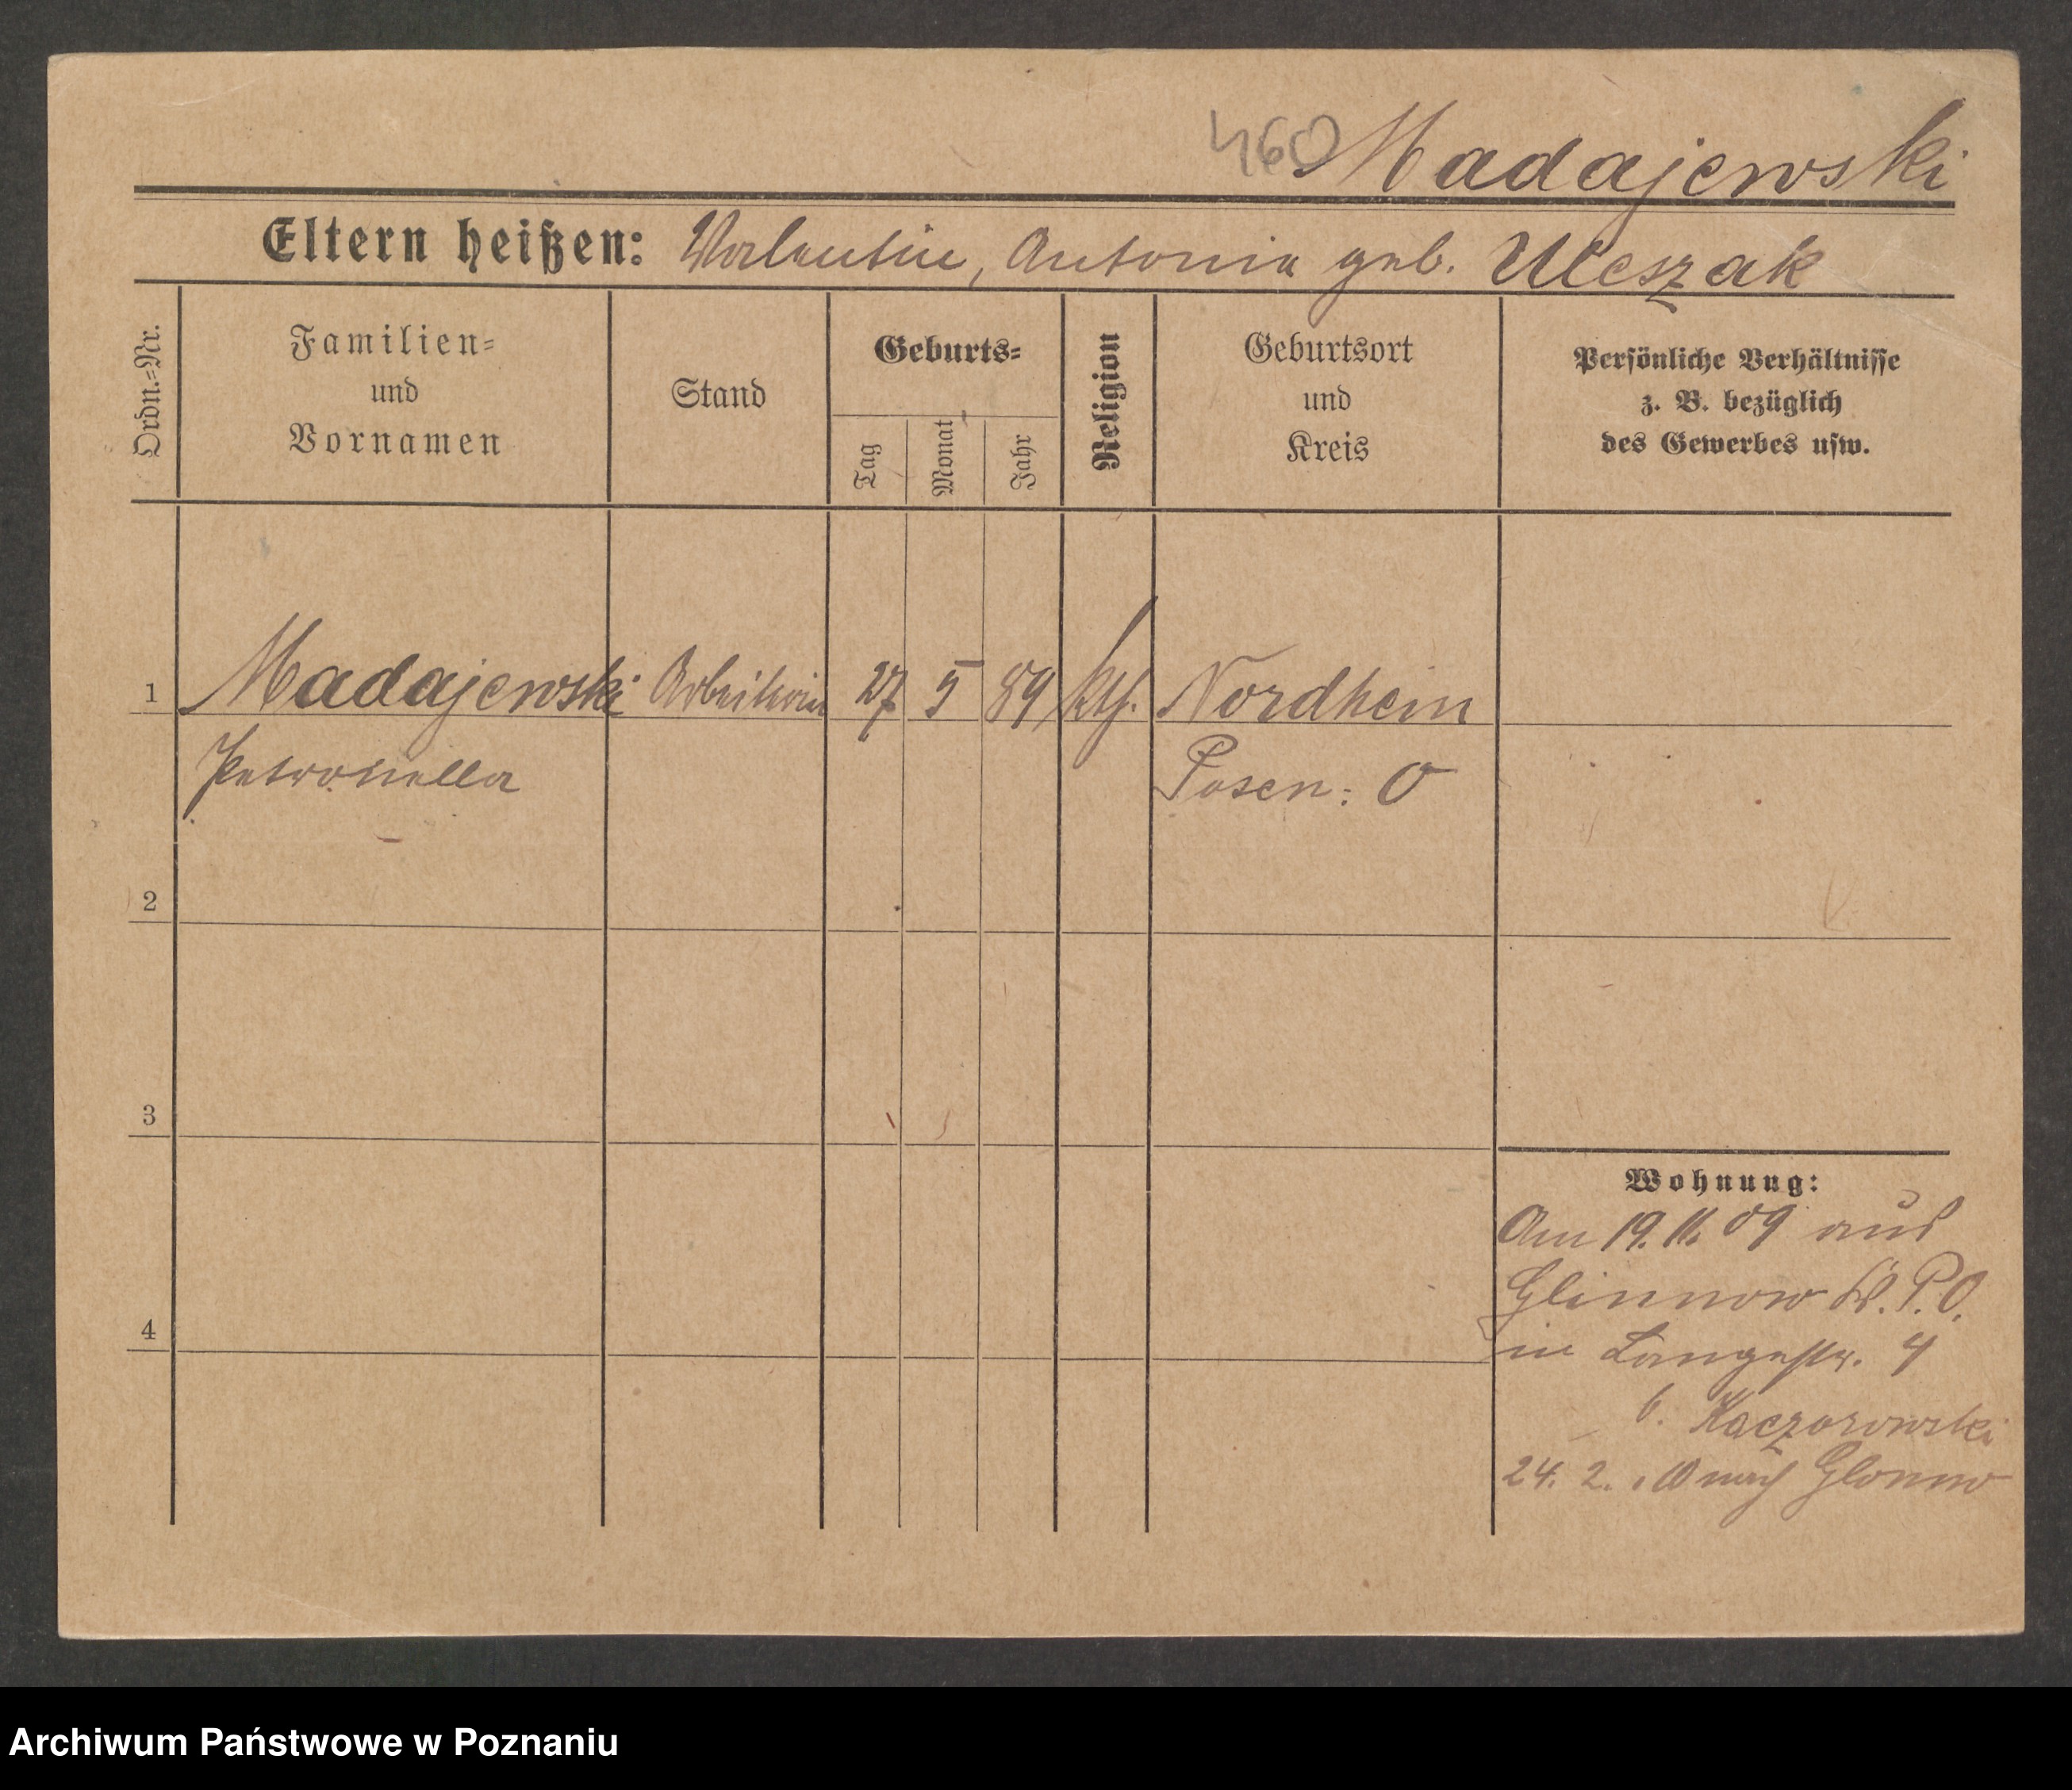 460 Madajewski
Eltern heißen: Valentin, Antonia geb. Uleszak
Ordn.=Nr.
Familien=
und
Vornamen
Stand
Geburts=
Tag
Monat
Jahr
Religion
Geburtsort
und
Kreis
Persönliche Verhältnisse
z. B. bezüglich
des Gewerbes usw.
1 Madajewski Arbeiterin 27 5 89 kth. Nordheim
Petronella Posen: O
2
3
4
Wohnung:
Am 19. 11. 09 aus
Glinnow Kr. P. O.
in Langestr. 4
b. Kaczorowski
24. 2. 10 nach
Archiwum Państwowe w Poznaniu